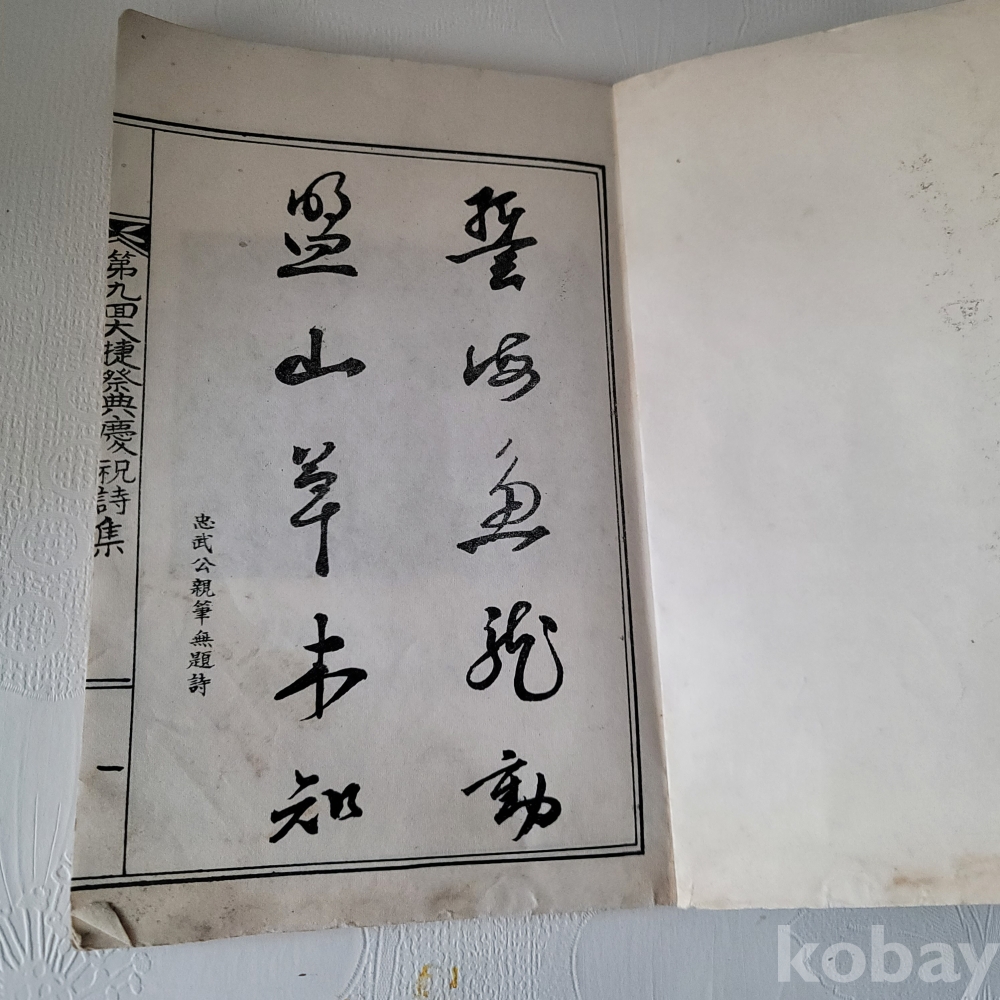 誓海魚龍動
盟山草木知
忠武公親筆無題詩
第九回大捷祭典慶祝詩集
一
kobay